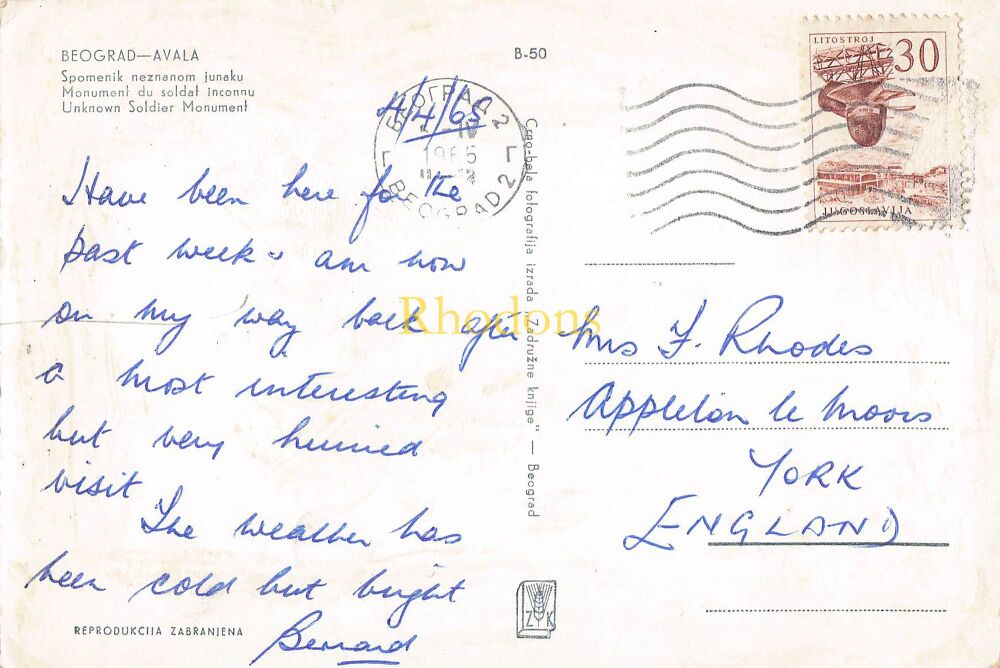 BEOGRAD—AVALA
Spomenik neznanom junaku
Monument du soldat inconnu
Unknown Soldier Monument
B-50
LITOSTROJ
30
JUGOSLAVIJA
БЕОГРАД 2
IV
1965
BEOGRAD 2
4/4/65
Have been here for the
past week & am now
on my way back after
a most interesting
but very hurried
visit
The weather has
been cold but bright
Bernard
REPRODUKCIJA ZABRANJENA
Crno-bela fotografija izrada „Zadružne knjige" — Beograd
Rhodons
Mrs F. Rhodes
Appleton le Moors
YORK
ENGLAND
Z K